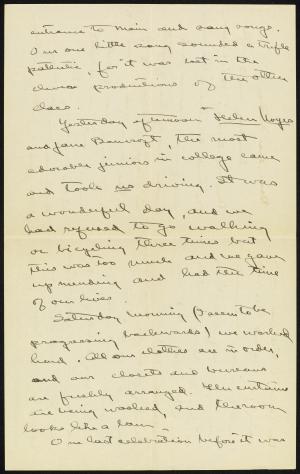 entrance to Main and sang songs.
Our one little song sounded a trifle
pathetic, for it was lost in the
chorus productions of the other
class.
Yesterday afternoon Helen Noyes
and Jane Bancroft, the most
adorable juniors in college came
and took us driving. It was
a wonderful day, and we
had refused to go walking
or bicycling three times but
this was too much and we gave
up mending and had the time
of our lives.
Saturday morning (I seem to be
progressing backwards) we worked
hard. All our clothes are in order,
and our closets and bureaus
are freshly arranged. The curtains
are being washed, and the room
looks like a barn.
Our last celebration before it was